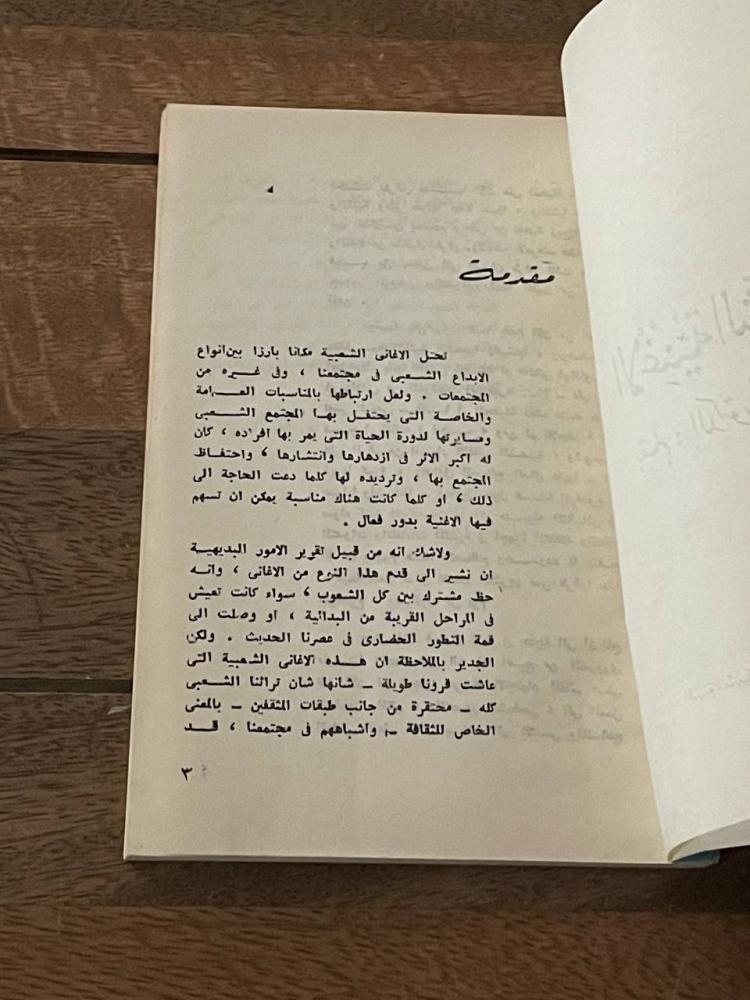 مقدمة
تحتل الاغانى الشعبية مكانا بارزا بين انواع
الابداع الشعبى فى مجتمعنا ، وفى غيره من
المجتمعات . ولعل ارتباطها بالمناسبات العامة
والخاصة التى يحتفل بها المجتمع الشعبى
ومسايرتها لدورة الحياة التى يمر بها افراده ، كان
له اكبر الاثر فى ازدهارها وانتشارها ، واحتفاظ
المجتمع بها ، وترديده لها كلما دعت الحاجة الى
ذلك ، او كلما كانت هناك مناسبة يمكن ان تسهم
فيها الاغنية بدور فعال .
ولاشك انه من قبيل تقرير الامور البديهية
ان نشير الى قدم هذا النوع من الاغانى ، وانه
حظ مشترك بين كل الشعوب ، سواء كانت تعيش
فى المراحل القريبة من البدائية ، او وصلت الى
قمة التطور الحضارى فى عصرنا الحديث . ولكن
الجدير بالملاحظة ان هذه الاغانى الشعبية التى
عاشت قرونا طويلة ـ شانها شان تراثنا الشعبى
كله ـ محتقرة من جانب طبقات المثقفين ـ بالمعنى
الخاص للثقافة ـ واشباههم فى مجتمعنا ، قد
٣